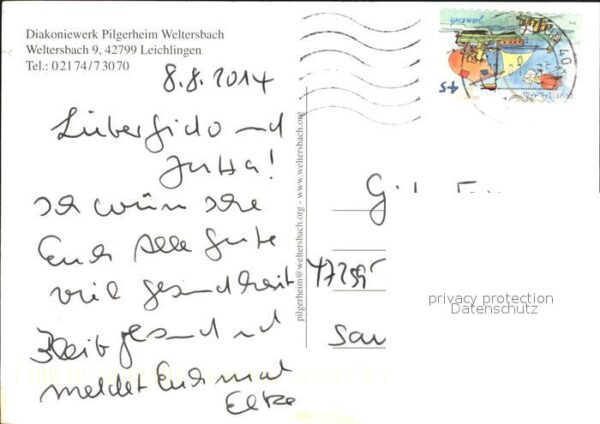 Diakoniewerk Pilgerheim Weltersbach
Weltersbach 9, 42799 Leichlingen
Tel.: 02174/73070
8.8.2014
Lieber Gido und
Jutta!
Ich wünsche
Euch Alle Gute
viel gesundheit
Bleib gesund und
meldet Euch mal
Elke
pilgerheim@weltersbach.org - www.weltersbach.org
45
G
47259
privacy protection
Datenschutz